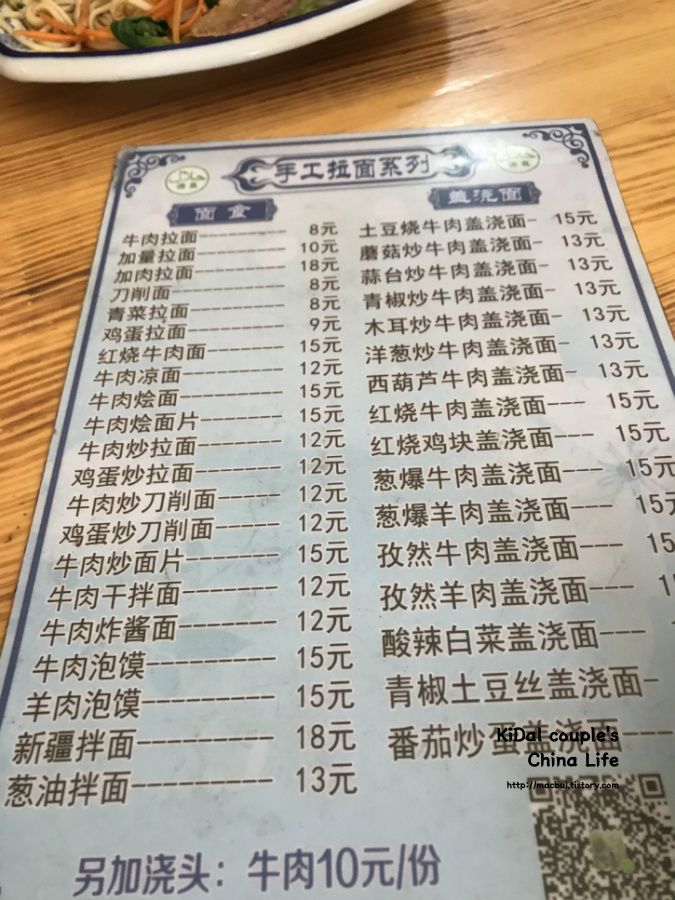 手工拉面系列
面食
牛肉拉面----------- 8元
加量拉面----------- 10元
加肉拉面----------- 18元
刀削面------------- 8元
青菜拉面----------- 8元
鸡蛋拉面----------- 9元
红烧牛肉面--------- 15元
牛肉凉面----------- 12元
牛肉烩面----------- 15元
牛肉烩面片--------- 15元
牛肉炒拉面--------- 12元
鸡蛋炒拉面--------- 12元
牛肉炒刀削面------- 12元
鸡蛋炒刀削面------- 12元
牛肉炒面片--------- 15元
牛肉干拌面--------- 12元
牛肉炸酱面--------- 12元
牛肉泡馍----------- 15元
羊肉泡馍----------- 15元
新疆拌面----------- 18元
葱油拌面----------- 13元
盖浇面
土豆烧牛肉盖浇面- 15元
蘑菇炒牛肉盖浇面- 13元
蒜台炒牛肉盖浇面- 13元
青椒炒牛肉盖浇面- 13元
木耳炒牛肉盖浇面- 13元
洋葱炒牛肉盖浇面- 13元
西葫芦牛肉盖浇面- 13元
红烧牛肉盖浇面--- 15元
红烧鸡块盖浇面--- 15元
葱爆牛肉盖浇面--- 15元
葱爆羊肉盖浇面--- 15元
孜然牛肉盖浇面--- 15
孜然羊肉盖浇面---
酸辣白菜盖浇面---
青椒土豆丝盖浇面-
番茄炒蛋盖浇面---
另加浇头：牛肉10元/份
KiDal couple's
China Life
http://macbul.tistory.com